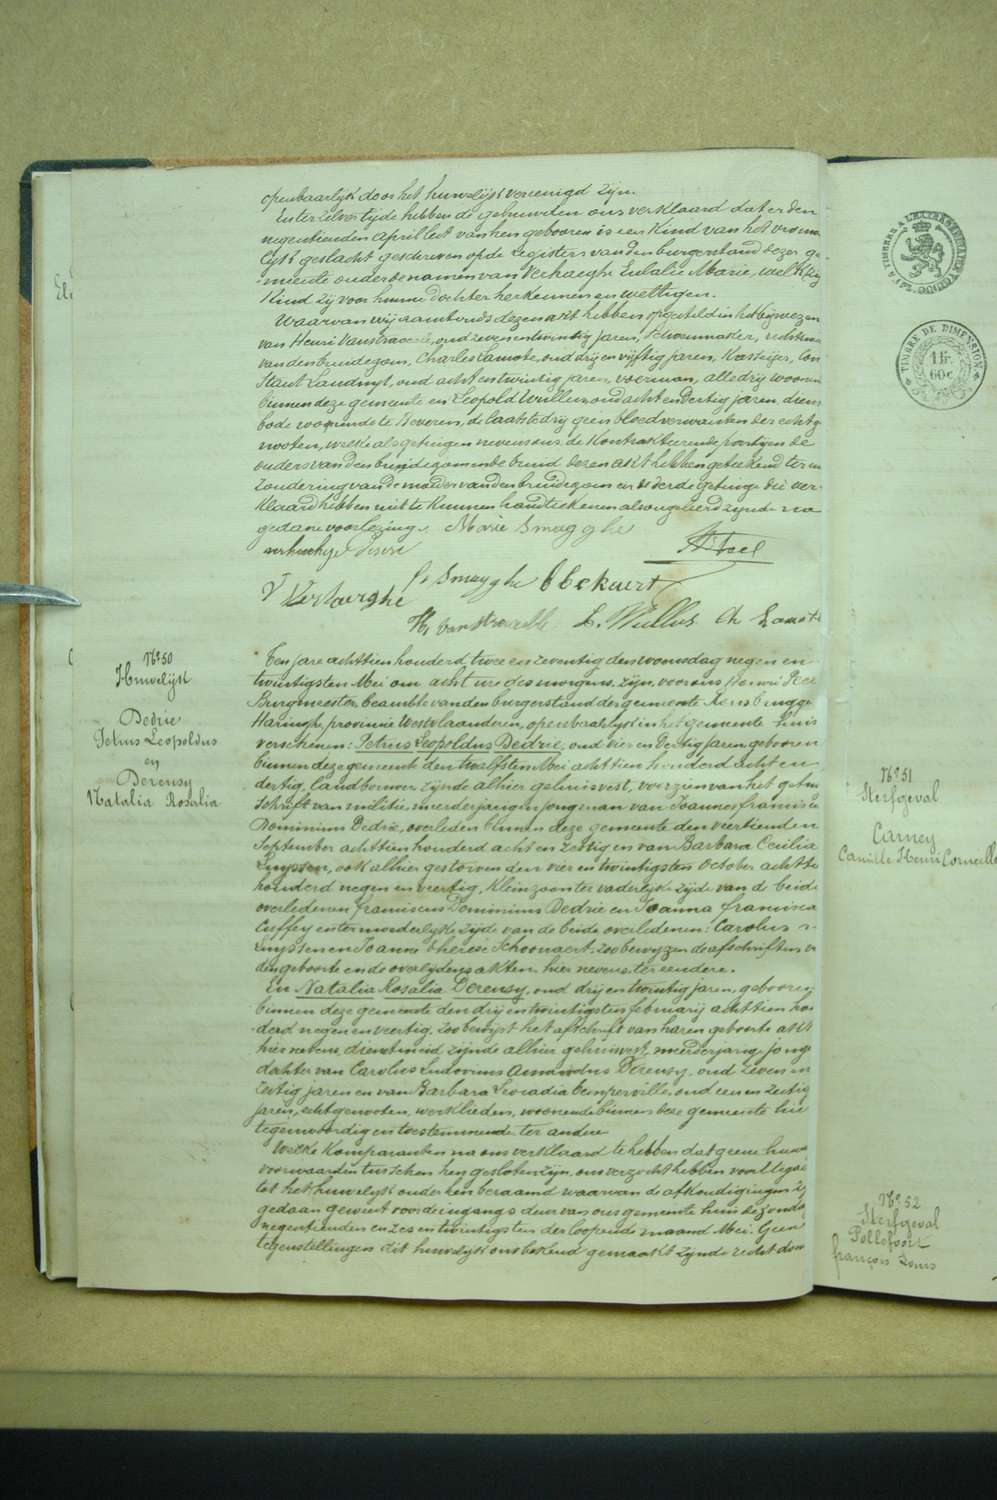 openbaarlijk door het huwelijk vereenigd zijn.
En ter zelver tyde hebben de gehuwden ons verklaard dat er den
negentienden April lest van hen geboren is een kind van het vrouwe
lijk geslacht geschreven op de registers van den burgerstand dezer ge
meente onder de namen van Verhaeghe Eulalie Marie, welk zy
kind zy voor hunne dochter herkennen en wettigen.
Waarvan wij aanstonds dezen akt hebben opgesteld in het bijwezen
van Henri Vanstraceele, oud zevenentwintig jaren, schoenmaker,
van den bruidegom, Charles Lamote, oud drij en vijftig jaren, Kosteijer, Con
stant Landuyt, oud acht en twintig jaren, voerman, alle drij woonen
binnen deze gemeente en Leopold Wullus, oud acht en dertig jaren, diens
bode woonende te Beveren, de laatste drij geen bloedverwanten der echtge
nooten, welke als getuigen nevens ons de kontrakteerende partijen de
ouders van den bruidegom en de bruid dezen akt hebben geteekend ter uit
zondering van de moeder van den bruidegom en de derde getuige die ver-
klaard hebben niet te kunnen handteekenen alvoren geleerd zijnde na
gedane voorlezing. Marie Smagghe
verhaeghe
S. Smagghe B Bekaert
V Verhaeghe
H. Vanstraceele L. Wullus Ch Lamote
No 50
Huwelijk
Dedrie
Petrus Leopoldus
en
Derensy
Natalia Rosalia
Ten jare achttien honderd twee en zeventig den woensdag negen en
twintigsten Mei om acht ure des morgens, zijn, voor ons Henri
Burgmeester, beambte van den burgerstand der gemeente Rousbrugge
Haringhe, provincie Westvlaanderen, openbaarlijk in het gemeente huis
verschenen: Petrus Leopoldus Dedrie, oud vier en dertig jaren geboren
binnen deze gemeente den twalfsten Mei achttien honderd acht en
dertig, landbouwer, zijnde alhier gehuisvest, voorzien van het getui
schrift van militie, meerderjarigen jongman van Joannes francis
Dominicus Dedrie, overleden binnen deze gemeente den veertienden
September achttien honderd acht en zestig en van Barbara Cecilia
Luyssen, ook alhier gestorven den vier en twintigsten October achtti
honderd negen en veertig, kleinzoon ter vaderlijke zijde van de beide
overledenen franciscus Dominicus Dedrie en Joanna francisca
Cuffey en ter moederlyke zyde van de beide overledenen: Carolus
Luyssen en Joanna Therese Schoonaert, zoo bewyzen de afschriften v
den geboorte en de overlydens akten hier nevens ter eendere.
En Natalia Rosalia Derensy, oud drij en twintig jaren, geboren
binnen deze gemeente den drij en twintigsten februarij achttien hon
derd negen en veertig, zoo bewyst het afschrift van haren geboorte akt
hier nevens, dienstmeid zijnde alhier gehuisvest, meerderjarige jonge
dochter van Carolus Ludovicus Amandus Derensy, oud zeven en
zestig jaren en van Barbara Leocadia Temperville, oud een en zestig
jaren, echtgenooten, werklieden, woonende binnen deze gemeente hier
tegenwoordig en toestemmende ter andere.
Welke komparanten na ons verklaard te hebben dat geene huwe
voorwaarden tusschen hen gesloten zijn, ons verzocht hebben voort te gaan
tot het huwelyk onder hen beraamd waarvan de afkondigingen zy
gedaan geweest voor de ingangs deur van ons gemeente huis de zondag
negentienden en zes en twintigsten der loopende maand Mei. Geen
tegenstellingen dit huwelijk ons bekend gemaakt zijnde recht doen
TIMBRE DE DIMENSION
1 fr.
60 c
No 51
Sterfgeval
Carney
Camille Henri Corneille
No 52
Sterfgeval
Pollefoort
françois Louis